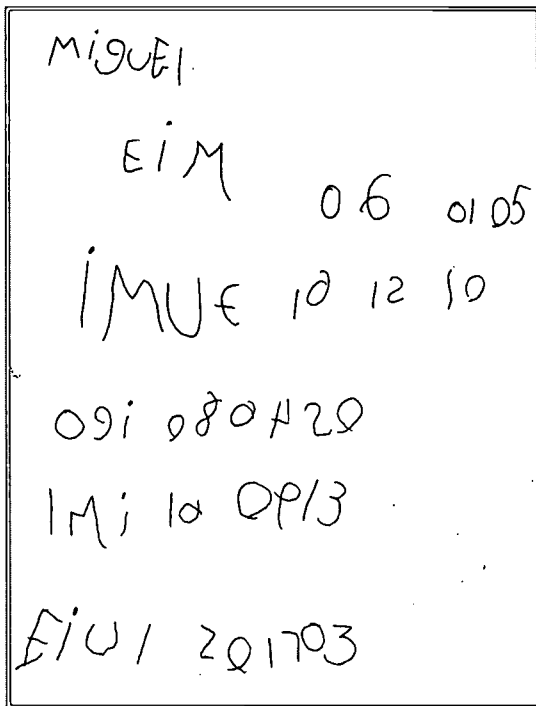 MiguEl
EiM
06 01 05
iMUE 10 12 10
09i 080420
IMi 10 0913
EiUI 201703